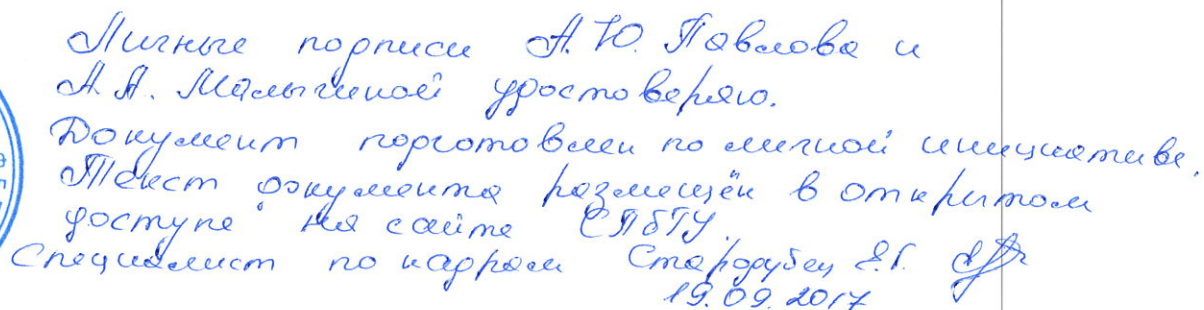 Личные подписи А.Ю. Павлова и
А.А. Малыгиной удостоверяю.
Документ подготовлен по личной инициативе.
Текст документа размещён в открытом
доступе на сайте СПбГУ.
Специалист по кадрам Стародубец Е.Г.
19.09.2017